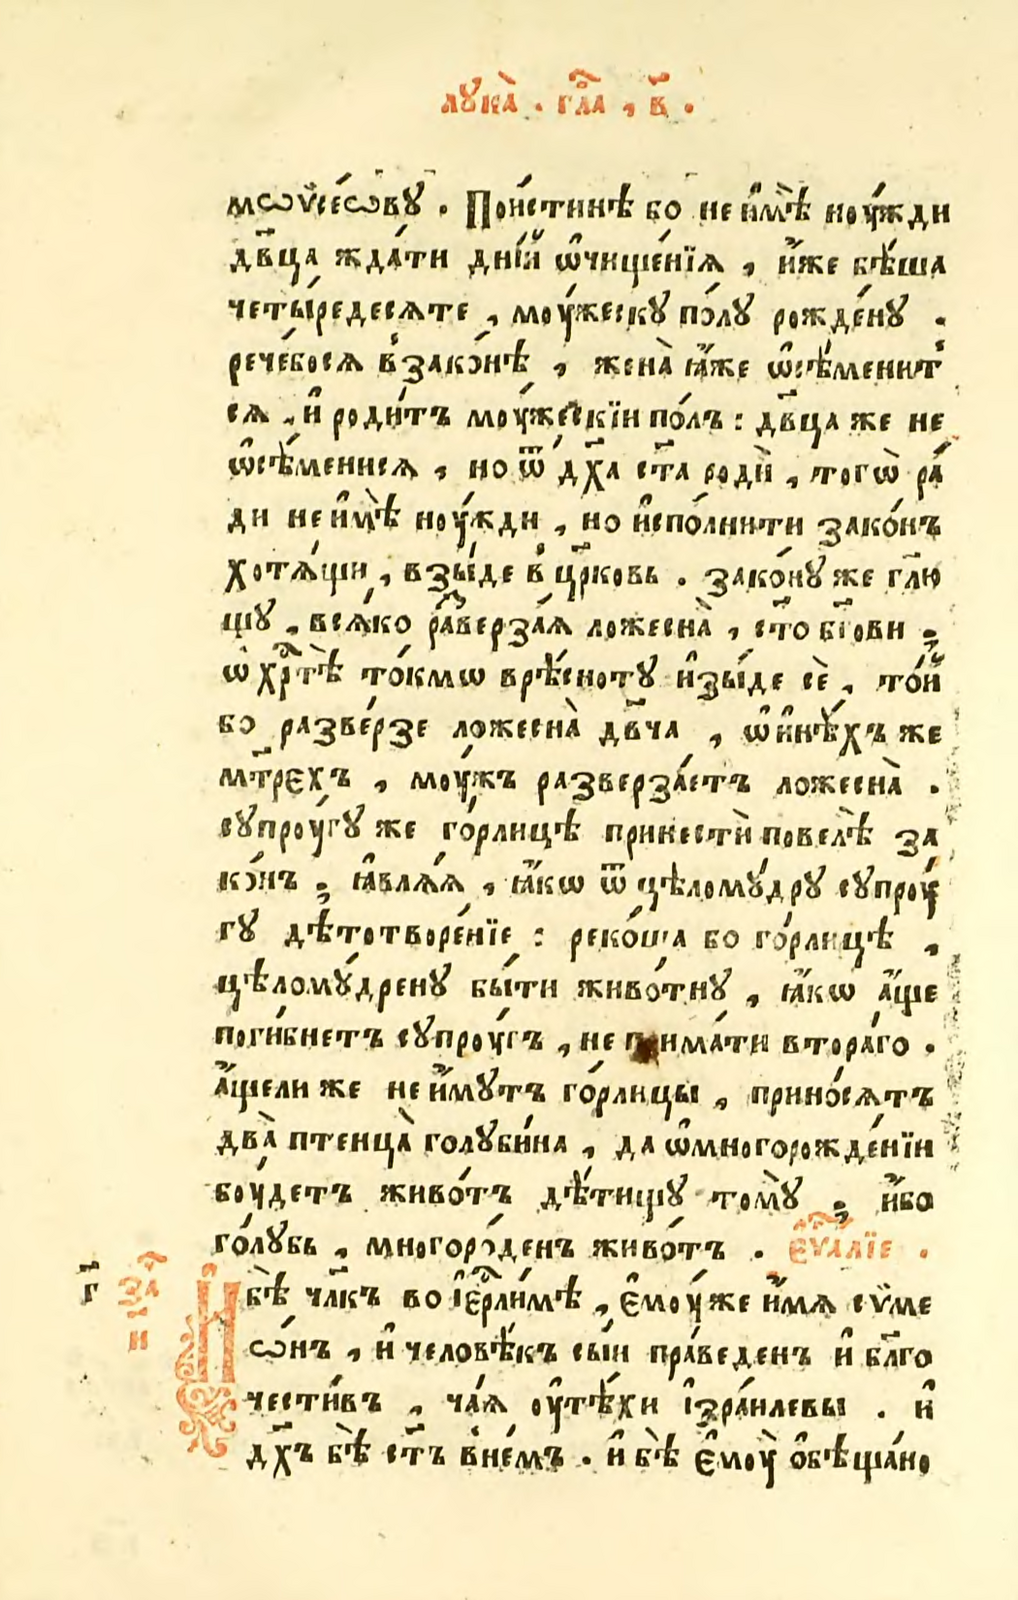 лꙋка̀ . гл҃а , в҃ .
мѡѷсе́ѡвꙋ . Пои́стинѣ бо не и҆мѣ̀ ноу́жди
дв҃ца жда́ти дні́й ѡ҆чище́нїѧ , и҆́же бѣ́ша
четы́редесѧте , моу́жескꙋ по́лꙋ рожде́нꙋ .
рече́босѧ в̾зако́нѣ , жена̀ ꙗ҆́же ѡ҆сѣ́менит̾
сѧ , и҆ роди́тъ моу́жескїи по́лъ : дв҃ца же не
ѡ҆сѣ́менисѧ , но ѿ дх҃а ст҃а родѝ , тогѡ̀ ра́
ди не и҆мѣ̀ ноу́жди , но и҆спо́лнити зако́нъ
хотѧ́щи , взы́де в̾ цр҃ковь . зако́нꙋ же гл҃ю
щꙋ , всѧ́ко ра́зверза́ѧ ложесна̀ , ст҃о бг҃ови ;
ѡ҆ хр҃тѣ̀ то́кмѡ врѣ́снотꙋ и҆зы́де сѐ , то́й
бо разве́рзе ложесна̀ дв҃ча , ѡ҆ и҆нѣ́хъ же
мт҃рехъ , моу́жъ разверза́етъ ложесна̀ .
сꙋпроу́гꙋ же го́рлицѣ принестѝ повелѣ̀ за
ко́нъ ; ꙗ҆влѧ́ѧ , ꙗ҆́кѡ ѿ цѣломꙋ́дрꙋ сꙋпроу́
гꙋ дѣтотворе́нїе : реко́ша бо го́рлицѣ ,
цѣломꙋ́дренꙋ бы́ти живо́тнꙋ , ꙗ҆́кѡ а҆́ще
поги́бнетъ сꙋпроу́гъ , не примати втора́го .
а҆́щели же не и҆́мꙋтъ го́рлицы , прино́сѧтъ
два̀ птенца̀ голꙋби́на , да ѡ҆многорожде́нїи
боу́детъ живо́тъ дѣ́тищꙋ томꙋ̀ ; и҆́бо
го́лꙋбь , многоро́денъ живо́тъ . є҆ѵⷢ҇алїе .
г҃ за҃ и҃
И бѣ̀ чл҃къ во і҆ер҃ли́мѣ , є҆моу́же и҆́мѧ сѷме
ѡ́нъ , и҆ человѣ́къ сы́и пра́веденъ и҆ бл҃го
чести́въ , ча́ѧ оу҆тѣ́хи і҆зра́илевы . и҆
дх҃ъ бѣ̀ ст҃ъ в̾не́мъ . и҆ бѣ̀ є҆моу̀ ѻ҆бѣща́но